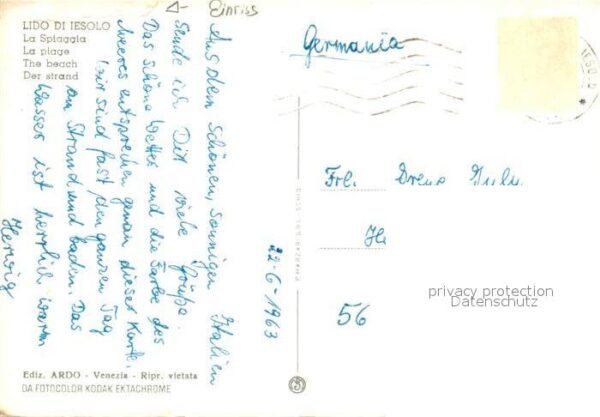 Einriss
LIDO DI IESOLO
La Spiaggia
La plage
The beach
Der strand
Aus dem schönen, sonnigen Italien
sende ich Dir viele Grüße.
Das schöne Wetter und die Farbe des
Meeres entsprechen genau dieser Karte.
Wir sind fast den ganzen Tag
am Strand und baden. Das
Wasser ist herrlich warm
Herwig
22-6-1963
Germania
Frl.
He
56
privacy protection
Datenschutz
Ediz. ARDO - Venezia - Ripr. vietata
DA FOTOCOLOR KODAK EKTACHROME